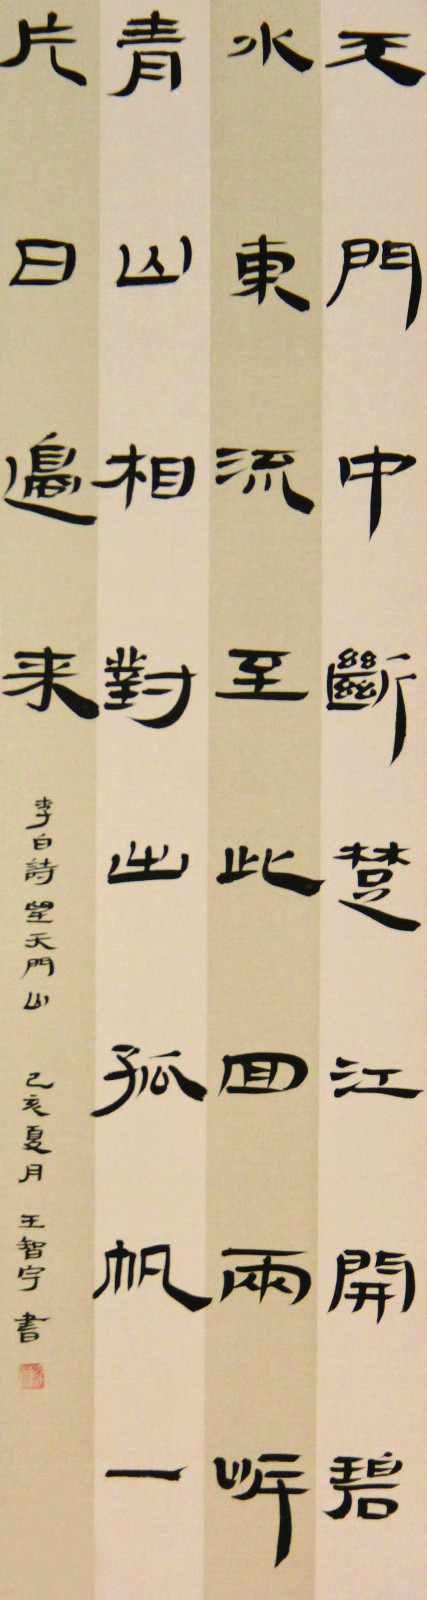 天門中斷楚江開碧
水東流至此回兩岸
青山相對出孤帆一
片日邊来
李白詩望天門山 己亥夏月 王智宇書